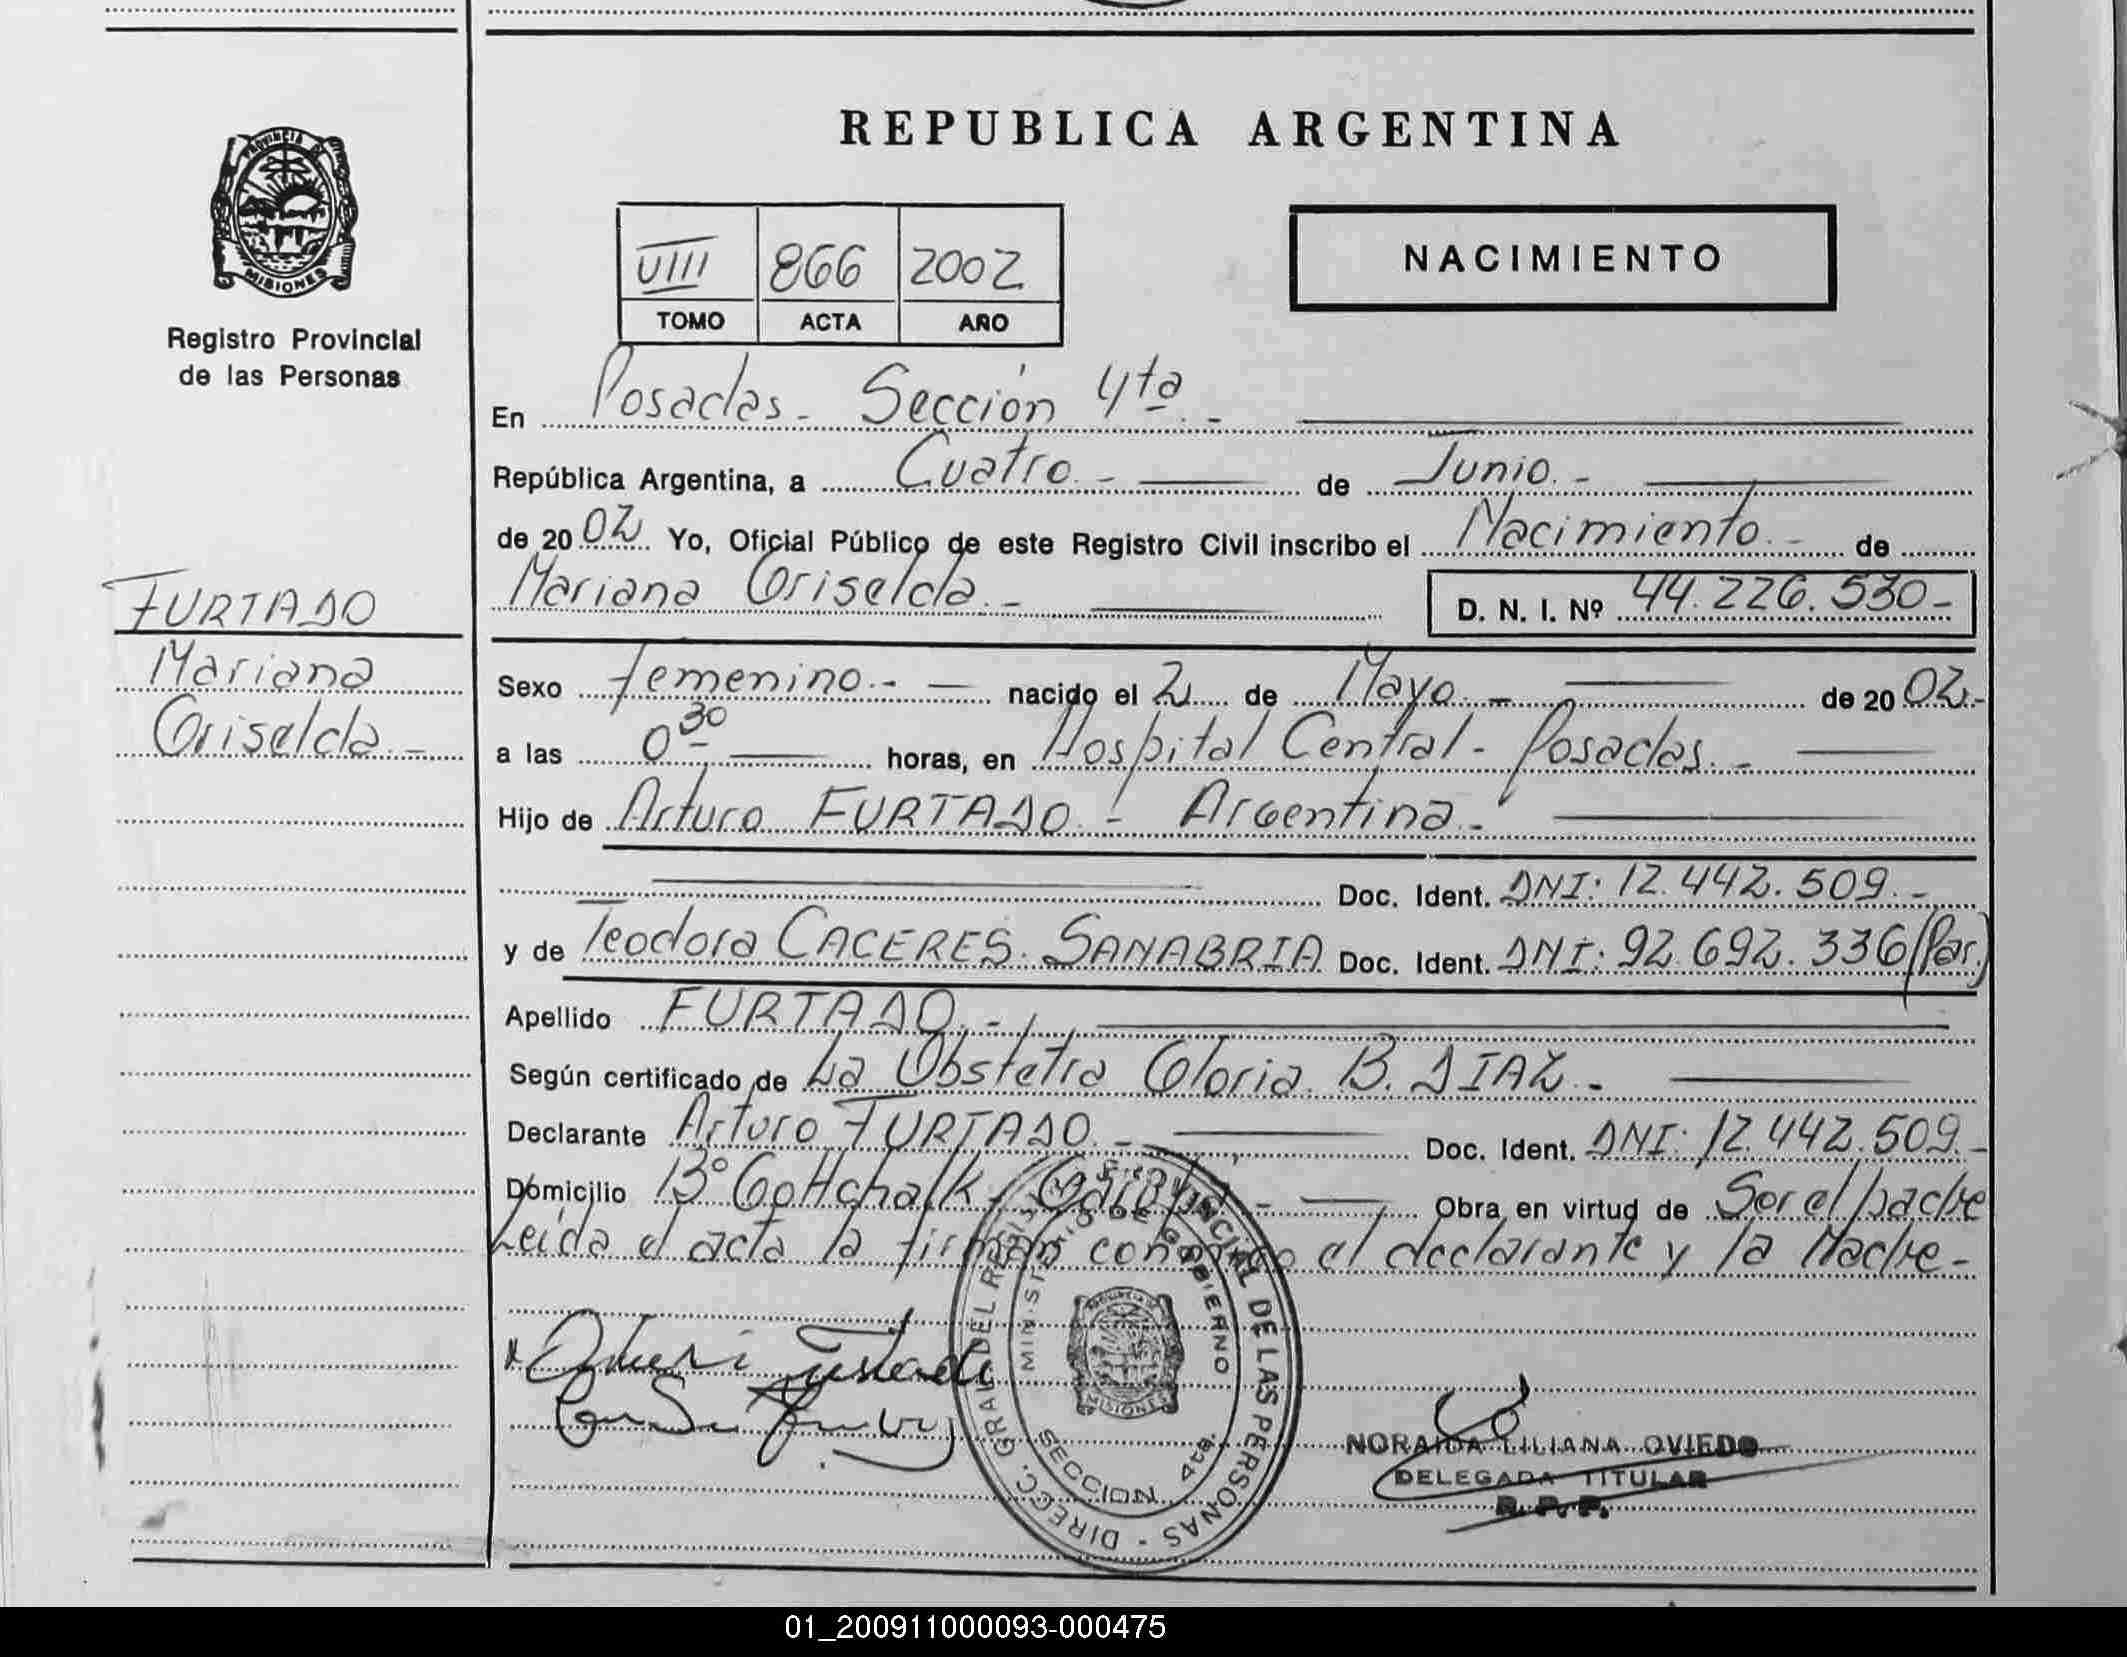 REPUBLICA ARGENTINA
PROVINCIA DE
MISIONES
Registro Provincial
de las Personas
VIII 866 2002
TOMO ACTA AÑO
NACIMIENTO
En Posadas - Sección 4ta. -
República Argentina, a Cuatro. - de Junio. -
de 2002 Yo, Oficial Público de este Registro Civil inscribo el Nacimiento. - de
Mariana Griselda. - D. N. I. Nº 44.226.530 -
FURTADO
Mariana
Griselda. -
Sexo femenino. - nacido el 2 de Mayo. - de 2002. -
a las 0 30 horas, en Hospital Central - Posadas. -
Hijo de Arturo FURTADO. - Argentina. -
Doc. Ident. DNI: 12.442.509. -
y de Teodora CACERES SANABRIA Doc. Ident. DNI: 92.692.336 (Par.)
Apellido FURTADO. -
Según certificado de La Obstetra Gloria B. DIAZ. -
Declarante Arturo FURTADO. - Doc. Ident. DNI: 12.442.509. -
Domicilio Bº Gottchalk - Obra en virtud de Ser el padre
Leída el acta la firman conmigo el declarante y la Madre -
DIRECC. GRAL. DEL REGISTRO PROVINCIAL DE LAS PERSONAS -
MINISTERIO DE GOBIERNO
SECCION 4ta.
MISIONES
NORAIDA LILIANA OVIEDO
DELEGADA TITULAR
R. P. P.
01_200911000093-000475